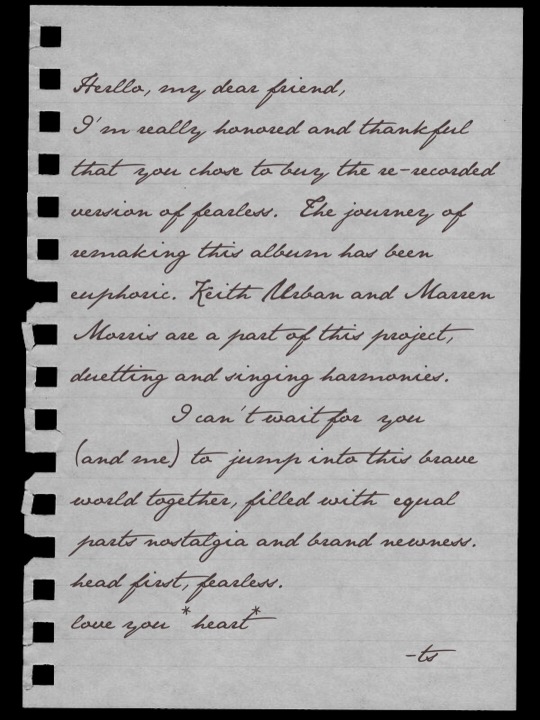 Herllo, my dear friend,
I'm really honored and thankful
that you chose to buy the re-recorded
version of fearless. The journey of
remaking this album has been
euphoric. Keith Urban and Marren
Morris are a part of this project,
duetting and singing harmonies.
I can't wait for you
(and me) to jump into this brave
world together, filled with equal
parts nostalgia and brand newness.
head first, fearless.
love you *heart*
-ts